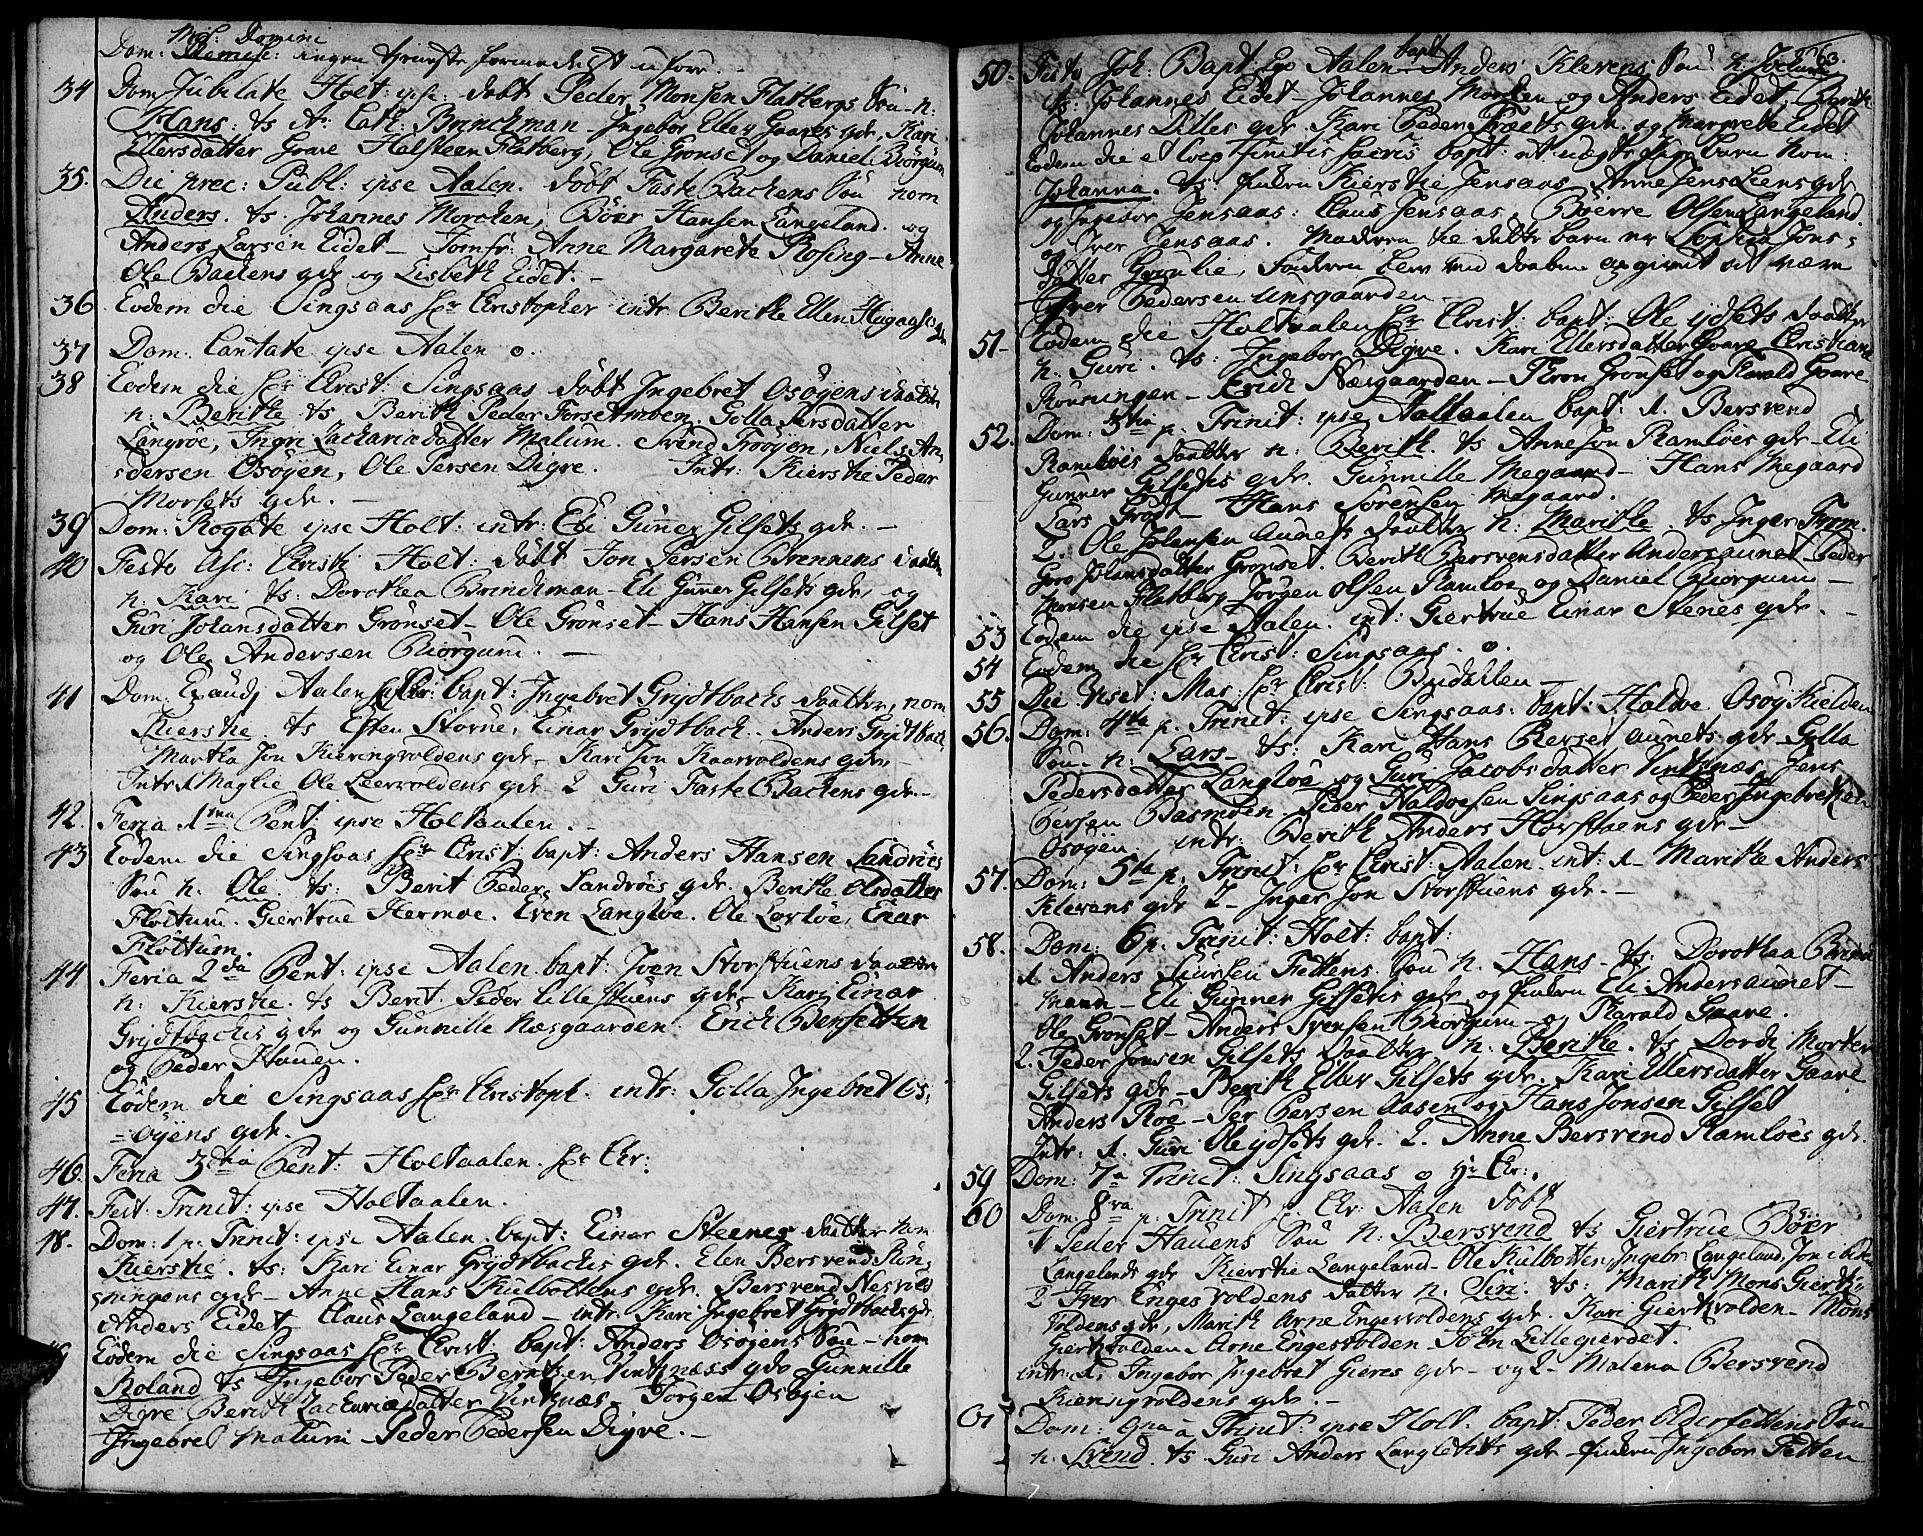 Mis: Domini
Dom: ingen tieniste formedelst uføre.
34 Dom Jubilate Holt: ipse: døbt Peder Monsen Flatbergs Søn n:
Hans: ts Ar: Cath: Brinchman - Ingebor Eller Gaares gdr, Kari
Ellersdatter Gaare Halsteen Flatberg, Ole Grønset og Daniel Biörgum
35. Die prec: Publ: ipse Aalen. døbt Faste Bachens Søn nom
Anders. ts. Johannes Morchen, Böer Hansen Langeland og
Anders Larsen Eidet - Jomfr: Anne Margarete Rosing - Anne
Ole Bachens gdr og Lisbeth Eidet. -
36 Eodem die Singsaas pr Christopher intr Berithe Ellen Haugaases gdr
37 Dom: Cantate ipse Aalen o.
38 Eodem die pr Christ: Singsaas døbt Ingebret Osøyens daatter
n: Berithe ts Berith Peder Forsetmoen, Golla Persdatter
Langröe, Ingri Zachariædatter Malum. Svend Frøyen, Niels An,
dersen Osöyen, Ole Persen Digre. Intr. Kierstie Peder
Morsets gdr. -
39 Dom: Rogate ipse Holt: intr: Eli Guner Gilsets gdr. -
40 Festo Asc: Christi Holt: døbt Jon Persen Brennens daatter
n: Kari ts: Dorothea Brinchman - Eli Gunner Gilsets gdr, og
Guri Johansdatter Grönset - Ole Grönset - Hans Hansen Gilset
og Ole Andersen Biörgum. -
41 Dom: Exaudj Aalen pr Chr: bapt: Ingebret Grydtbachs daatter, nom
Kierstie. ts Esten Storue, Einar Grydtbach. Anders Grydtbach
Martha Jon Kieringvoldens gdr - Kari Jon Kaarvoldens gdr -
Intr: 1 Maglie Ole Leervoldens gdr - 2 Guri Faste Bachens gdr. -
42. Feria 1ma Pent: ipse Holtaalen. -
43 Eodem die Singsaas pr Christ: bapt: Anders Hansen Sandröes
Søn n. Ole. ts: Berit Peder Sandröes gdr. Berithe Olsdatter
Flöttum. Giertrue Hermoe. Even Langlöe. Ole Lorlöe, Einar
Flöttum.
44 Feria 2da Pent: ipse Aalen. bapt: Joen Storstuens daatter
n: Kierstie. ts Berit. Peder Lillestuens gdr - Kari Einar
Grydtbachs gdr og Gunnille Næsgaarden. Erich
og Peder Hauen.
45 Eodem die Singsaas pr Christoph. intr: Golla Ingebret Os,
=øyens gdr.
46. Feria 3tia Pent: Holtaalen. pr Chr:
47. Fest. Trinit: ipse Holtaalen.
48. Dom: 1 p: Trinit: ipse Aalen. bapt: Einar Steenes daatter nom
Kierstie. ts: Kari Einar Grydtbachs gdr. Elen Bersvend
ningens gdr - Anne Hans Kulbottens gdr. Bersvend Nesvold
Anders Eidet - Claus Langeland - intr Kari Ingebret Grydtbachs gdr.
49 Eodem die Singsaas pr Christ: bapt: Anders Osøyens Søn - nom
Roland ts Ingebor Peder Berntsen Vintnæs gdr Gunnille
Digre Berith Zachariædatter Vintnæs. Jorgen Osøyen
Ingebret Malum - Peder Pedersen Digre. -
63.
50. Festo Joh: Bapt: Aalen bapt Anders Klevens Søn n: Jochum
ts: Johannes Eidet - Johannes Morken og Anders Eidet. Berith
Johannes Lilles gdr. Kari Peder gdr. og Margrete Eidet
Eodem die finitis sacris bapt: et uægte barn nom:
Johanna. ts piken Kierstie Jensaas Anne Jens Liens gdr
og Ingebor Jensaas: Claus Jensaas. Böerre Olsen Langeland.
og Iver Jensaas. Moderen til dette barn er Sophia Jons,
datter Gröulie, Faderen blev ved daaben angivet at være
Iver Pedersen Unsgaarden
51 - Eodem die Holtaalen pr Christ: bapt: Ole Ydsets daatter
n: Guri. ts: Ingebor Digre. Kari Ellersdatter Gaare Christiane
Rönningen - Erich Næsgaarden - Thron Grönset og Harald Gaare
52. Dom: 3tia p. Trinit: ipse Holtaalen bapt: 1. Bersvend
Ramlöes daatter n: Berith. ts Anne Jon Ramlöes gdr - Eli
Gunner Gilsets gdr. Gunnille Megaard - Hans Megaard
Lars Grödt - Hans Sörensen Megaard.
2. Ole Johansen Aunets daatter n: Marithe. ts Inger From.
Goro Johansdatter Grönset. Berith Bersvensdatter Andersaunet. Peder
Monsen Flatberg Jørgen Olsen Ramloe og Daniel Biörgum -
53 Eodem die ipse Aalen. int: Giertrue Einar Stenes gdr. -
54 Eodem die pr Christ: Singsaas. o.
55 Die Viset: Mar: pr Christ: Budalen -
56. Dom: 4ta p. Trinit: ipse Singsaas: bapt: Haldoe Osöy Kielden
Søn - n: Lars - ts: Kari Hans Aunets gdr - Golla
Pedersdatter Langlöe og Guri Jacobsdatter Vintsnæs, Jens
Persen Basmoen Peder Haldoesen Singsaas og Peder Ingebretsen
Osøyen intr: Berith Anders Horstoens gdr -
57. Dom: 5ta p. Trinit: pr Christ: Aalen. int: 1 - Marithe Anders
Klevens gdr 2 - Inger Jon Storstuens gdr. -
58. Dom: 6 p. Trinit: Holt: bapt:
1 Anders Siursen Fettens Søn n. Hans - ts: Dorothea Brinch
mann - Eli Gunner Gilsets gdr og piken Eli Andersaunet -
Ole Grönset - Anders Svensen Biorgum - og Harald Gaare.
2. Peder Jonsen Gilsets daatter n. Berithe. ts Dordi Morten
Gilsets gdr - Berith Eller Gilsets gdr. Kari Ellersdatter Gaare
Anders Roe - Per Persen Aasen og Hans Jonsen Gilset
Intr: 1. Guri Ole Ydsets gdr. 2. Anne Bersvend Ramlöes gdr.
59 Dom: 7a Trinit: Singsaas o Hr Chr:.
60 Dom. 8va p. Trinit p. Chr: Aalen døbt
1 Peder Hauens Søn n: Bersvend ts Giertrue Böier
Langelands gdr Kierstie Langeland - Ole Kulbotten, Ingebr: Langeland, Jon ibidem
2 Iver Engesvoldens datter n. Siri. ts: Marith Mons Giert,
Voldens gdr, Marith Arne Engesvoldens gdr. Kari Giertvolden - Mons
Giertvolden, Arne Engesvolden - John Lillegierdet.
intr: 1, Ingebor Ingebret Gieres gdr - og 2 - Malena Bersvend
Kieringvoldens gdr. -
61 Dom: 9na a Trinit: ipse Holt. bapt: Peder Søn
n. Svend. ts Guri Anders Langlets gdr - piken Ingebor Fetten